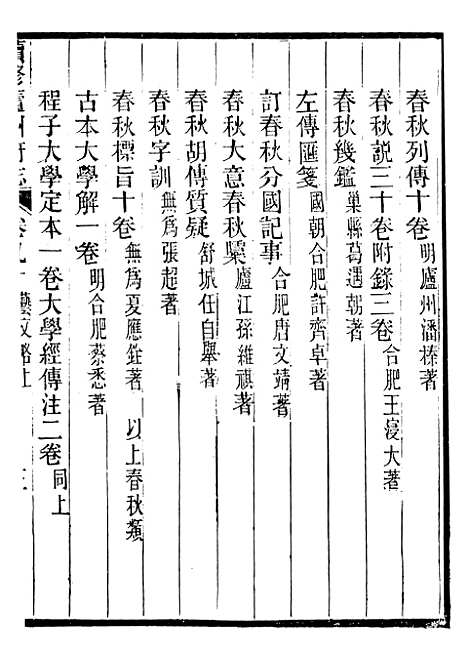 春秋列傳十卷明廬州潘榛著
春秋說三十卷附錄三卷合肥王寖大著
春秋幾鑑巢縣葛遇朝著
左傳匯箋國朝合肥許齊卓著
訂春秋分國記事合肥唐文靖著
春秋大意春秋槩廬江孫維祺著
春秋胡傳質疑舒城任自舉著
春秋字訓無爲張超著
春秋標旨十卷無爲夏應銓著 以上春秋類
古本大學解一卷明合肥蔡悉著
程子大學定本一卷大學經傳注二卷同上
續修廬州府志 卷九十 藝文略上 三